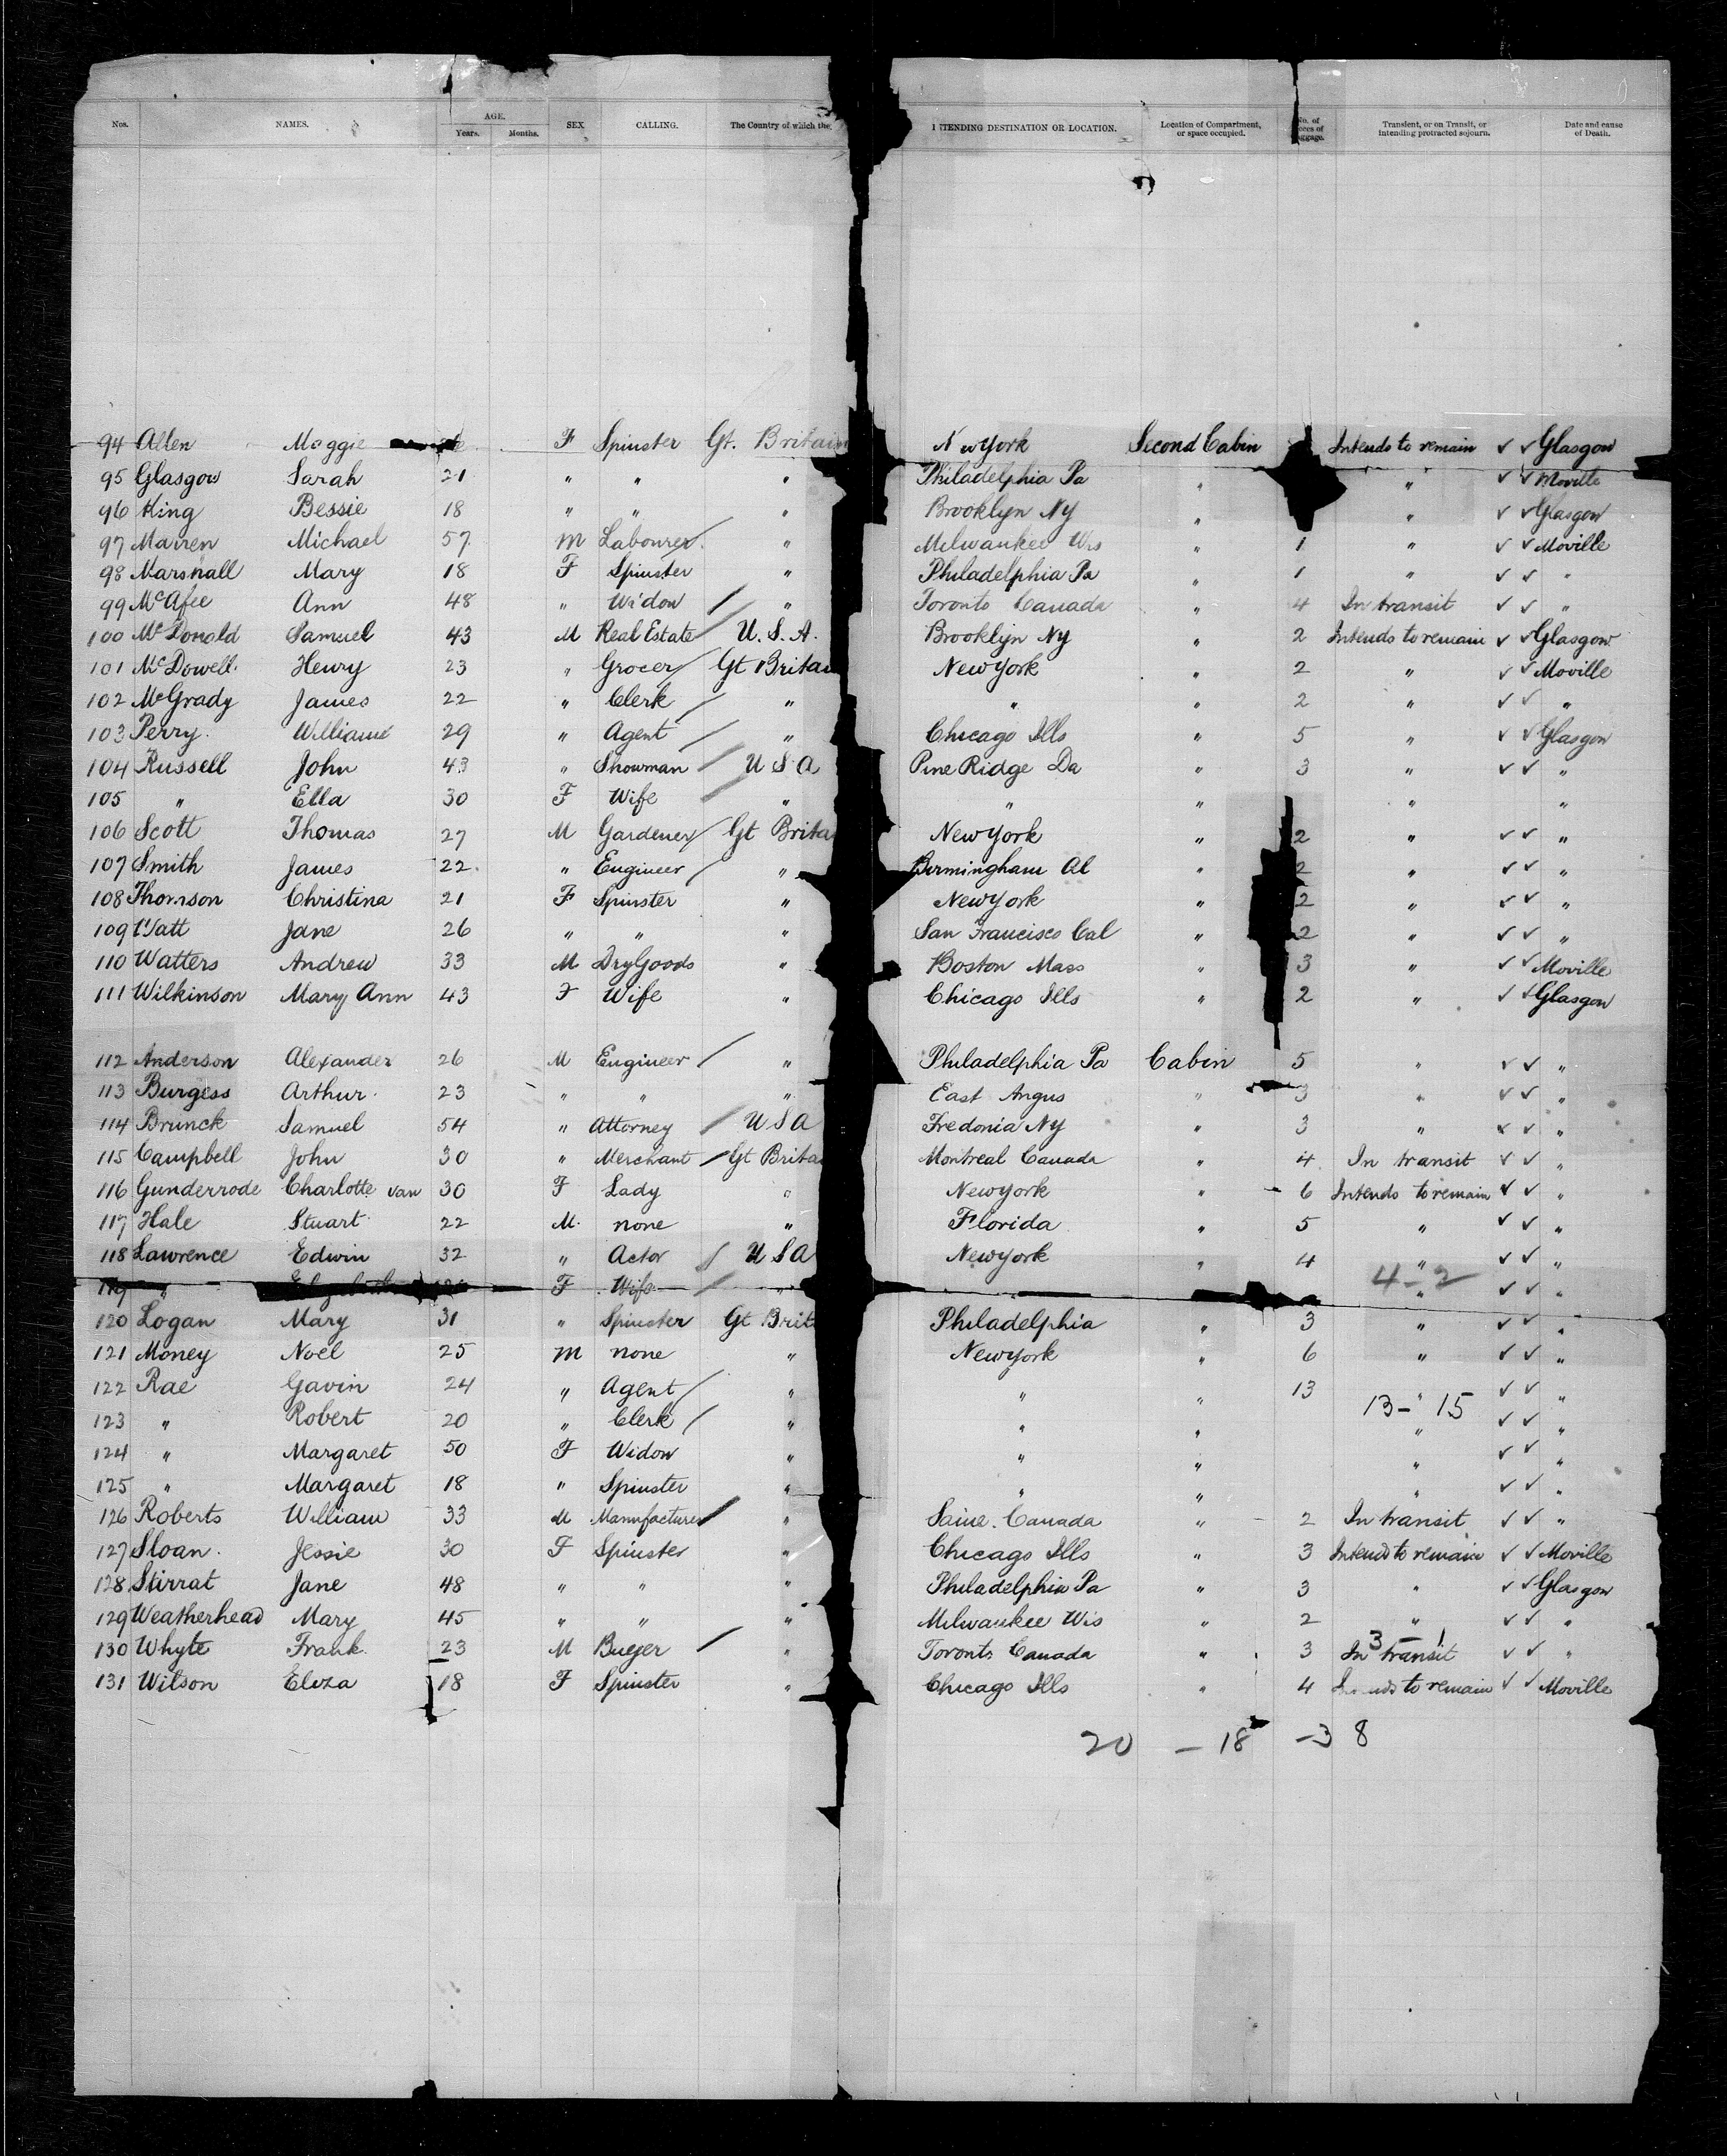 Nos. NAMES. AGE. Years. Months. SEX CALLING. The Country of which the TENDING DESTINATION OR LOCATION. Location of Compartment, or space occupied. No. of Transient, or on Transit, or intending protracted sojourn. Date and cause of Death.
94 Allen Maggie F Spinster Gt. Britain New York Second Cabin Intends to remain ✓ ✓ Glasgow
95 Glasgow Sarah 21 " " " Philadelphia Pa " " ✓ ✓ Moville
96 King Bessie 18 " " " Brooklyn Ny " " ✓ ✓ Glasgow
97 Mairen Michael 57 M Labourer " Milwaukee Wis " 1 " ✓ ✓ Moville
98 Marshall Mary 18 F Spinster " Philadelphia Pa " 1 " ✓ ✓ "
99 McAfee Ann 48 " Widow / " Toronto Canada " 4 In transit ✓ ✓ "
100 McDonald Samuel 43 M Real Estate / U. S. A. Brooklyn Ny " 2 Intends to remain ✓ ✓ Glasgow
101 McDowell. Henry 23 " Grocer / Gt Britai New York " 2 " ✓ ✓ Moville
102 McGrady James 22 " Clerk / " " " 2 " ✓ ✓ "
103 Perry. William 29 " Agent / " Chicago Ills " 5 " ✓ ✓ Glasgow
104 Russell John 43 " Showman / U S A Pine Ridge Da " 3 " ✓ ✓ "
105 " Ella 30 F Wife / " " " " "
106 Scott Thomas 27 M Gardener / Gt Brita New York " 2 " ✓ ✓ "
107 Smith James 22. " Engineer / " Birmingham Al " 2 " ✓ ✓ "
108 Thomson Christina 21 F Spinster " New York " 2 " ✓ ✓ "
109 Watt Jane 26 " " " San Francisco Cal " 2 " ✓ ✓ "
110 Watters Andrew 33 M DryGoods " Boston Mass " 3 " ✓ ✓ Moville
111 Wilkinson Mary Ann 43 F Wife " Chicago Ills " 2 " ✓ ✓ Glasgow
112 Anderson Alexander 26 M Engineer / " Philadelphia Pa Cabin 5 " ✓ ✓ "
113 Burgess Arthur. 23 " " " East Angus " 3 " ✓ ✓ "
114 Brunck Samuel 54 " Attorney / U S A Fredonia Ny " 3 " ✓ ✓ "
115 Campbell John 30 " Merchant / Gt Brita Montreal Canada " 4 In transit ✓ ✓ "
116 Gunderrode Charlotte van 30 F Lady " New York " 6 Intends to remain ✓ ✓ "
117 Hale Stuart 22 M. none " Florida " 5 " ✓ ✓ "
118 Lawrence Edwin 32 " Actor / U S A New York " 4 " ✓ ✓ "
4-2
119 " Elizabeth F Wife / " " ✓ ✓ "
120 Logan Mary 31 " Spinster Gt Brit Philadelphia " 3 " ✓ ✓ "
121 Money Noel 25 M none " New York " 6 " ✓ ✓ "
122 Rae Gavin 24 " Agent / " " " 13 " ✓ ✓ "
13- 15
123 " Robert 20 " Clerk / " " " " ✓ ✓ "
124 " Margaret 50 F Widow " " " " ✓ ✓ "
125 " Margaret 18 " Spinster " " " " ✓ ✓ "
126 Roberts William 33 M Manufacturer / " Canada " 2 In transit ✓ ✓ "
127 Sloan. Jessie 30 F Spinster " Chicago Ills " 3 Intends to remain ✓ ✓ Moville
128 Stirrat Jane 48 " " " Philadelphia Pa " 3 " ✓ ✓ Glasgow
129 Weatherhead Mary 45 " " " Milwaukee Wis " 2 " ✓ ✓ "
3 - 1
130 Whyte Frank. 23 M Buyer / " Toronto Canada " 3 In transit ✓ ✓ "
131 Wilson Eliza 18 F Spinster " Chicago Ills " 4 to remain ✓ ✓ Moville
20 - 18 - 38